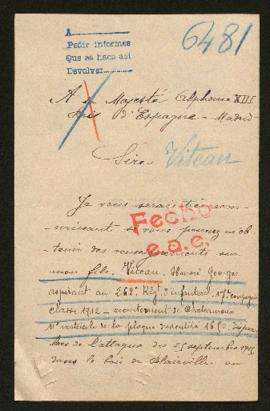 A
Pedir informes
Que se haga así
Devolver
6481
A Sa Majesté Alphonse XIII
Roi d'Espagne - Madrid
Sire
Viteau
Je vous serais très recon-
naissant si vous pouviez ob-
tenir des renseignements sur
Fecho
e.a.c.
mon fils, Viteau, Henri Georges
aspirant au 262e Rég. d'infanterie, 17e compagnie
classe 1912 - recrutement de
N° matricule de la plaque d'identité disparu
lors de l'attaque du 25 septembre 1915
dans le bois de Blairville